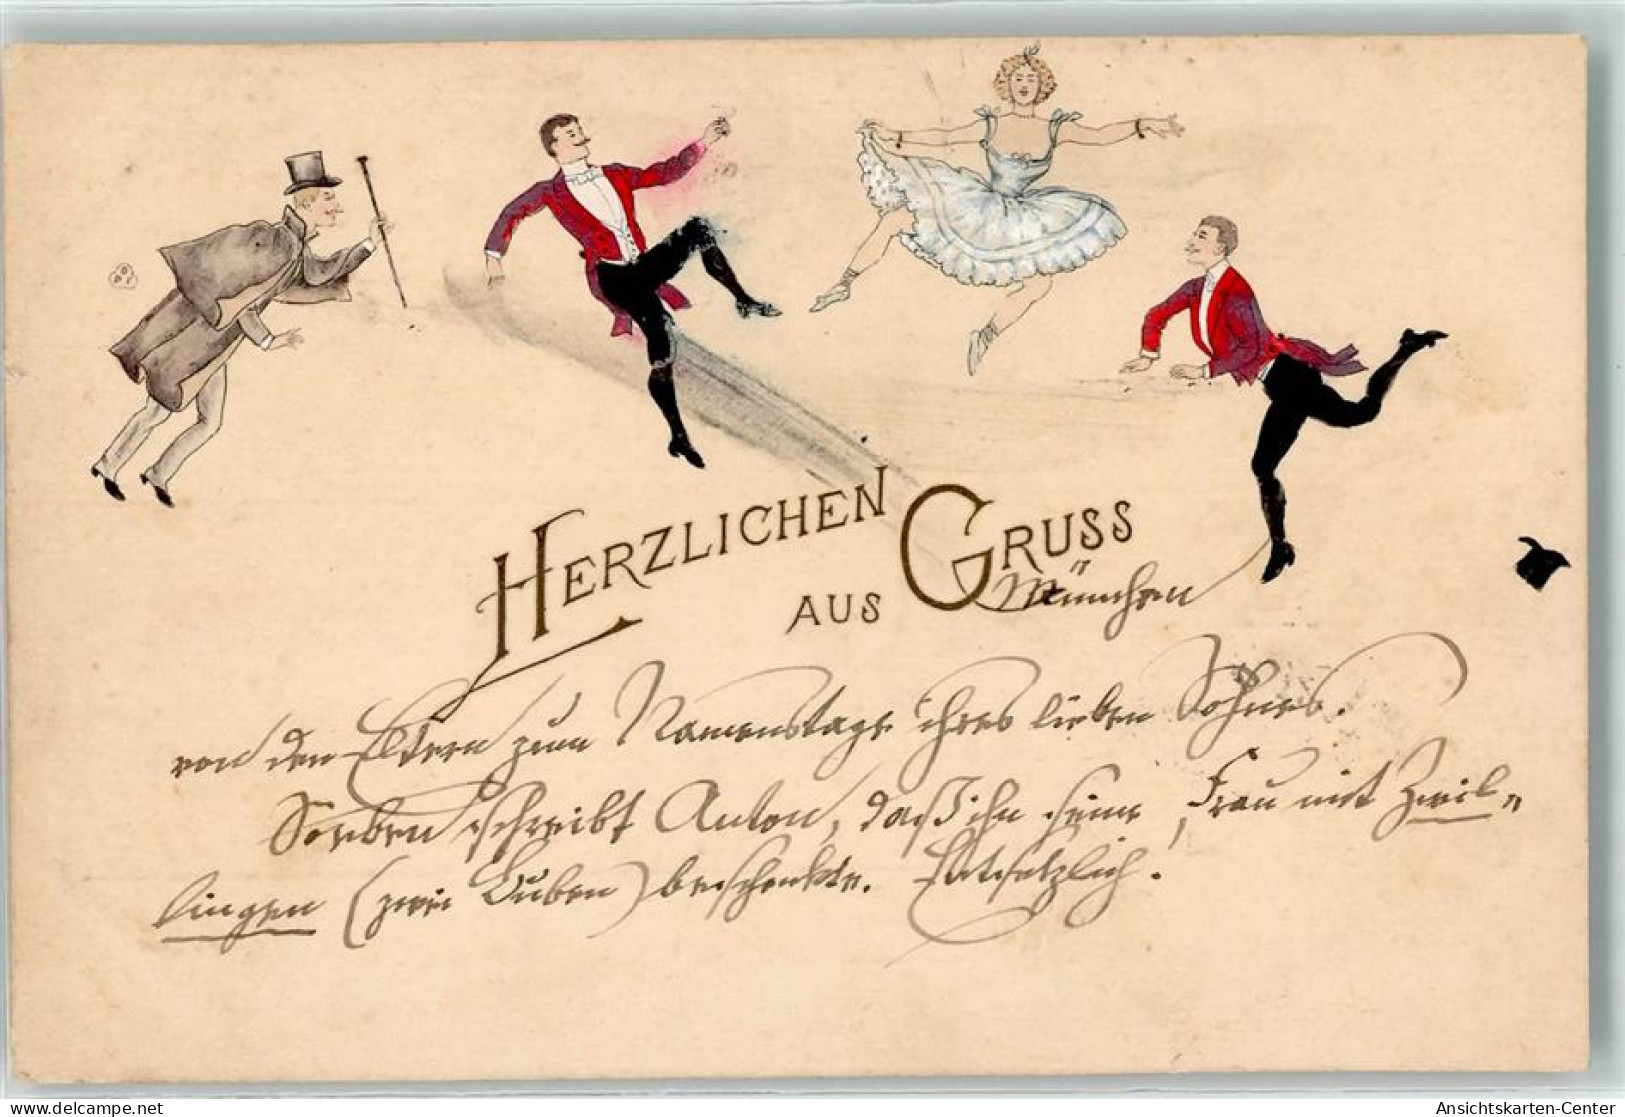 HERZLICHEN GRUSS
AUS München
von den Eltern zum Namenstage ihres lieben Sohnes.
Soeben schreibt Anton, daß ihn seine Frau mit Zwil-
lingen (zwei Buben) beschenkte. Entsetzlich.
Ansichtskarten-Center
www.delcampe.net